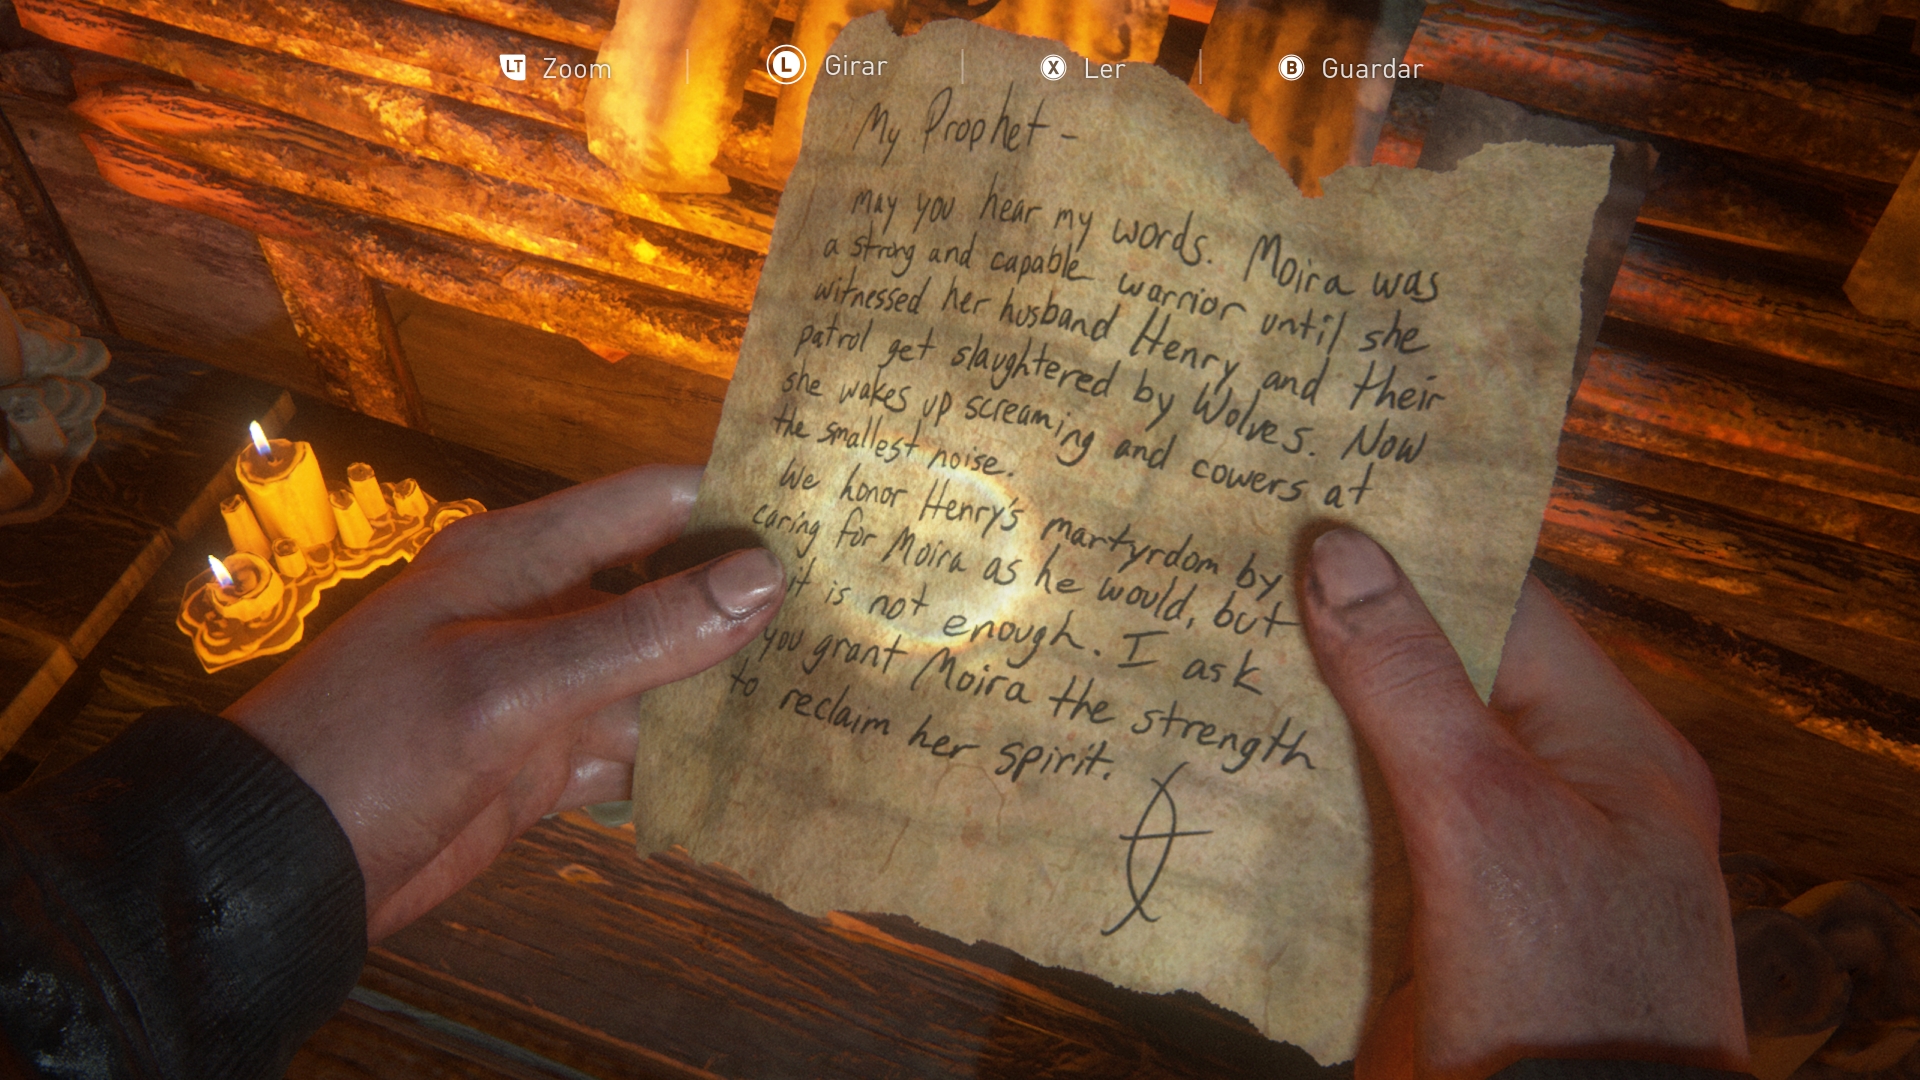 LT Zoom L Girar X Ler B Guardar
My Prophet -
may you hear my words. Moira was
a strong and capable warrior until she
witnessed her husband Henry and their
patrol get slaughtered by Wolves. Now
she wakes up screaming and cowers at
the smallest noise.
We honor Henry's martyrdom by
caring for Moira as he would, but
it is not enough. I ask
you grant Moira the strength
to reclaim her spirit.